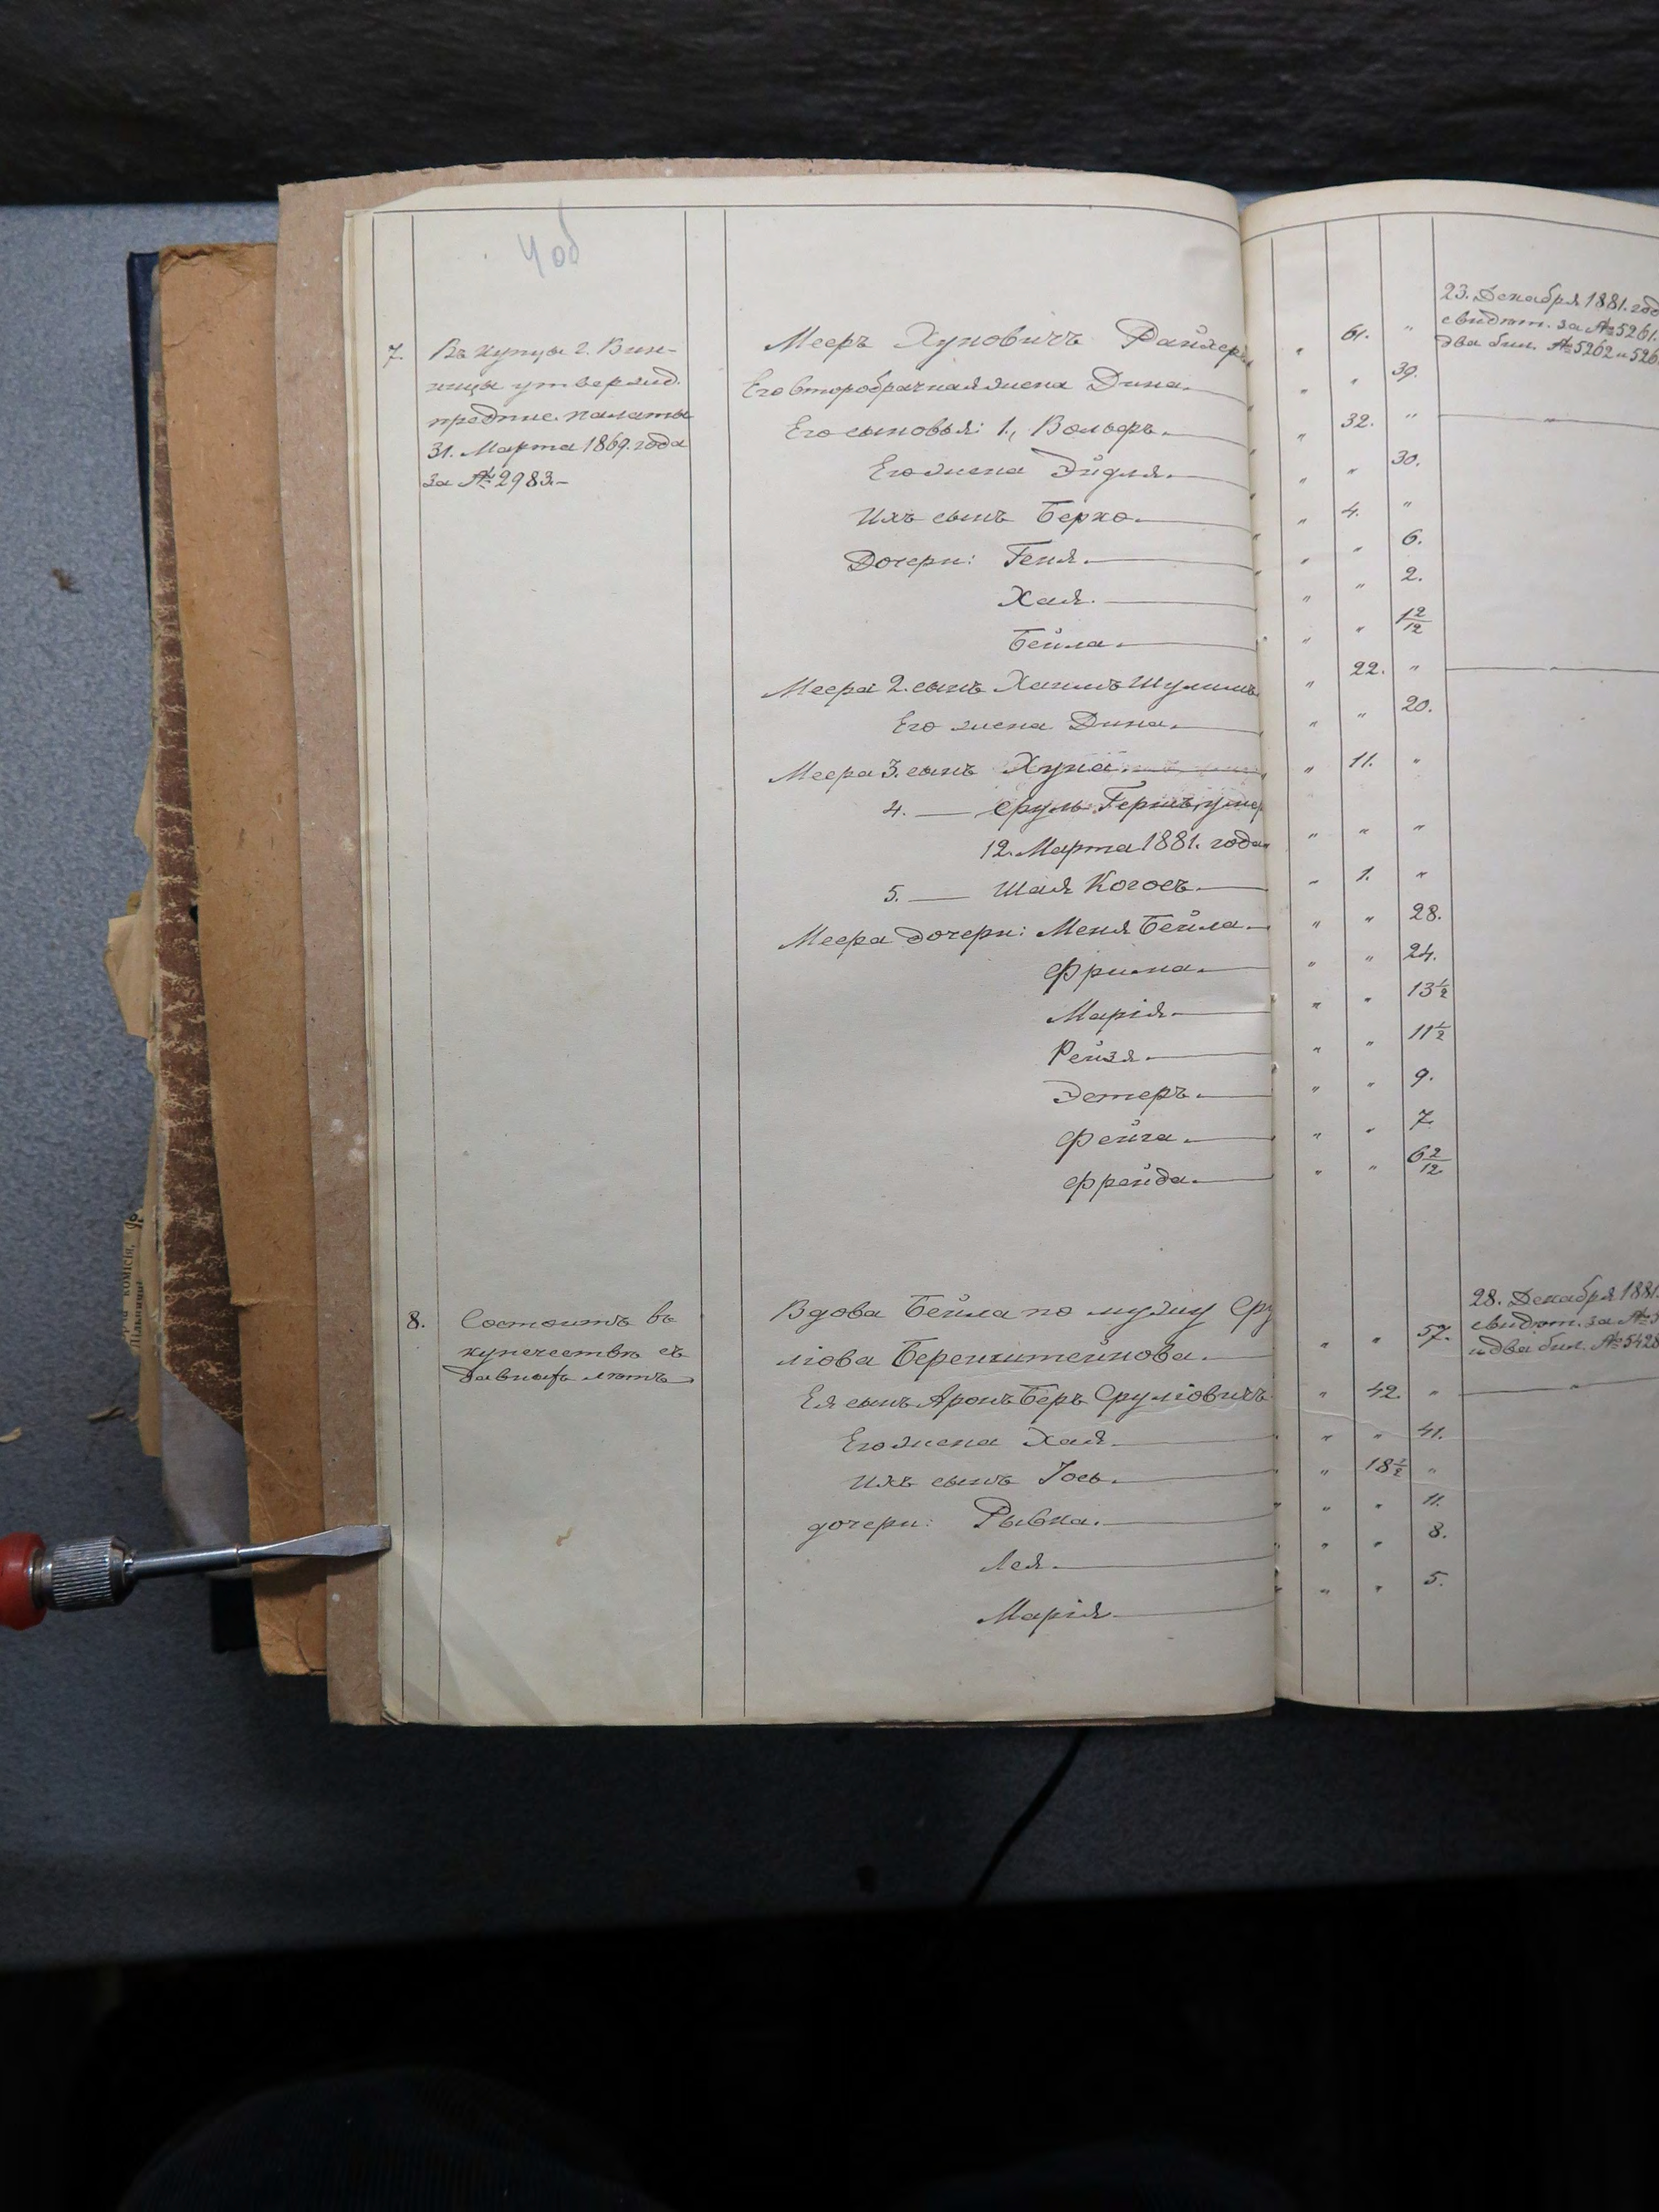 4 об
7.
Въ купцы г. Вин-
ницы утвержд.
предпис. палаты
31. Марта 1869. года
за № 2983.-
Мееръ Хуновичъ Райхер
" 61. "
23. Декабря 1881. год
свидѣт. за № 5261.
два бил. № 5262 и 526
Его второбрачная жена Дина.
" " 39.
Его сыновья: 1., Вольфъ.
" 32. "
Его жена Эйдля.
" " 30.
Ихъ сынъ Берко.
" 4. "
Дочери: Геня.
" " 6.
Хая.
" " 2.
Бейла.
" " 1 2/12
Меера 2. сынъ Хаимъ Шулимъ
" 22. "
Его жена Дина.
" " 20.
Меера 3. сынъ Хуна.
" 11. "
4. — Сруль Гершъ, умер
12. Марта 1881. года
" " "
5. — Шая Когосъ.
" 1. "
Меера дочери: Меня Бейла.
" " 28.
Фрима.
" " 24.
Марія.
" " 13 1/2
Рейзя.
" " 11 1/2
Эстеръ.
" " 9.
Фейга.
" " 7.
Фрейда.
" " 6 2/12
8.
Состоитъ въ
купечествѣ съ
давнихъ лѣтъ
Вдова Бейла по мужу Сру
ліова Беренштейнова.
" " 57.
28. Декабря 1881.
свидѣт. за №
и два бил. № 5428
Ея сынъ Аронъ Беръ Сруліовичъ
" 42. "
Его жена Хая.
" " 41.
Ихъ сынъ Іось.
" 18 1/2 "
дочери: Рывка.
" " 11.
Лея.
" " 8.
Марія
" " 5.
комісія,